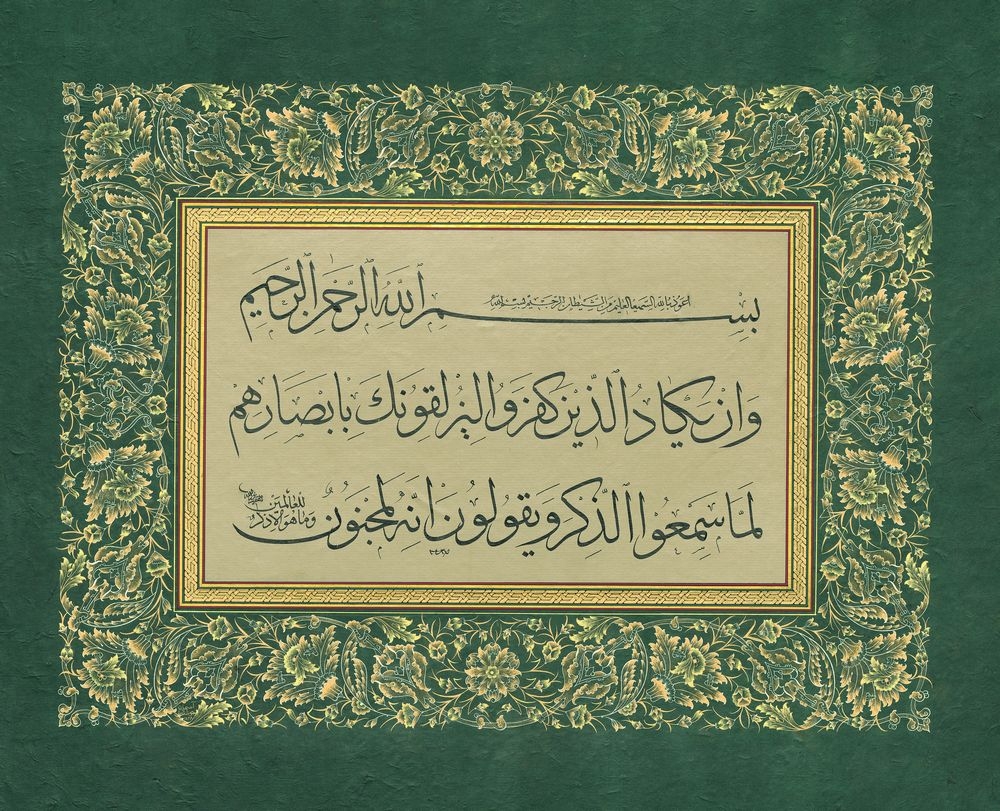 أعوذ بالله السميع العليم من الشيطان الرجيم
بِسْمِ اللهِ الرَّحْمٰنِ الرَّحِيمِ
وَاِنْ يَكَادُ الَّذِينَ كَفَرُوا لَيُزْلِقُونَكَ بِاَبْصَارِهِمْ
لَمَّا سَمِعُوا الذِّكْرَ وَيَقُولُونَ اِنَّهُ لَمَجْنُونٌ
وَمَا هُوَ اِلَّا ذِكْرٌ
لِلْعَالَمِينَ